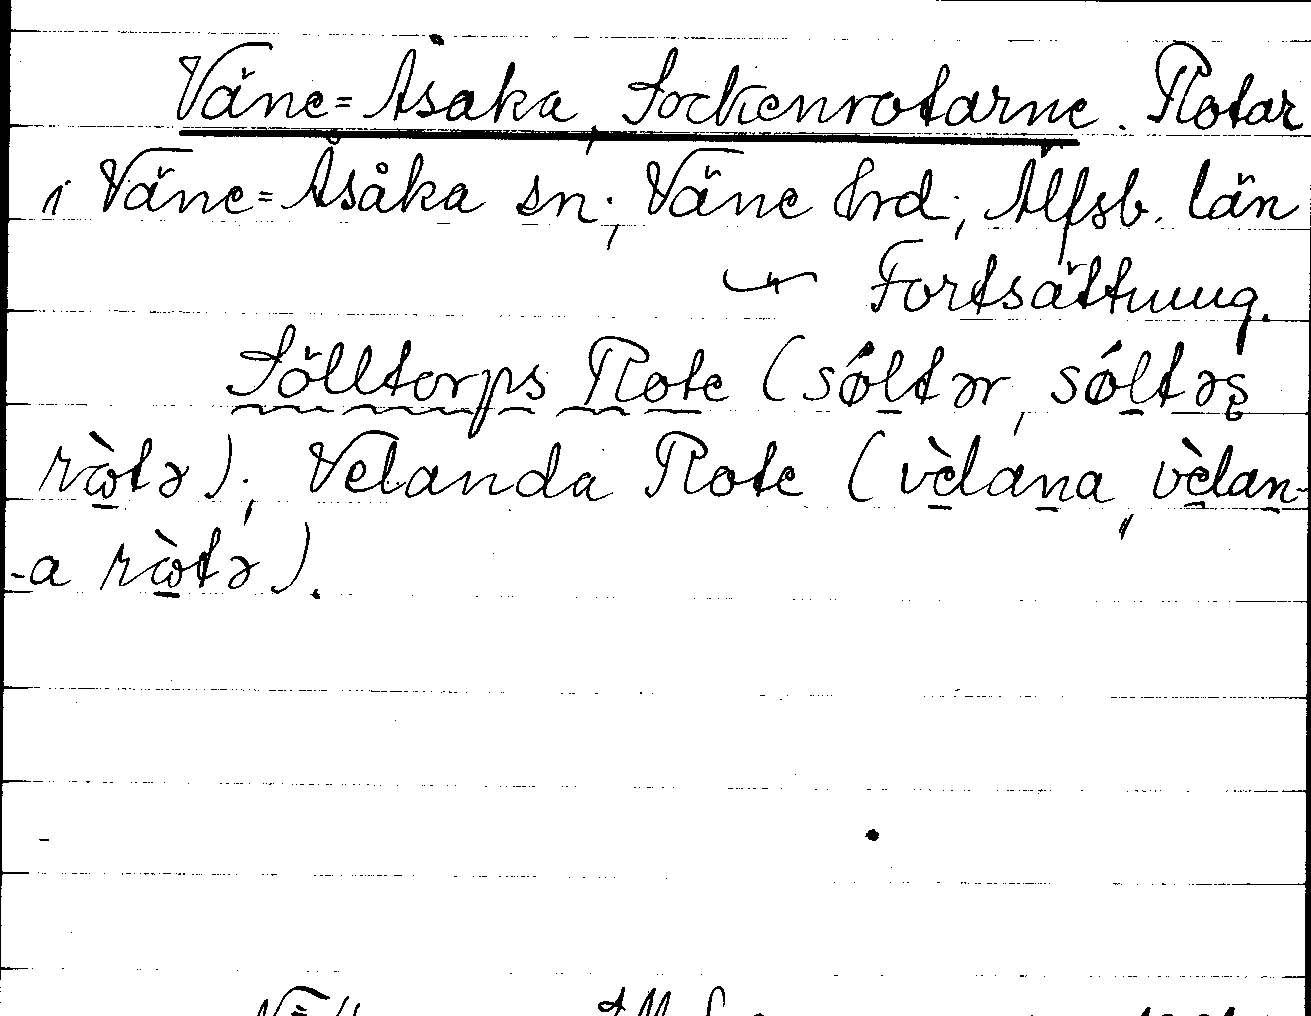 Väne=Åsaka, Sockenrotarne. Rotar
i Väne=Åsåka sn; Väne Hrd; Älfsb. län
Fortsättning.
Sölltorps Rote (sóltər, sóltəs
ròtə); Velanda Rote (vèlana, vèlan-
-a ròtə).